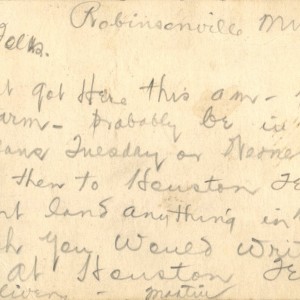 Robinsonville M
Folks.
t got Here this am -
arm - probably be in
eans Tuesday or Wednes
then to Houston Te
nt land anything in
h You Would Wri
at Houston Te
livery - Martin